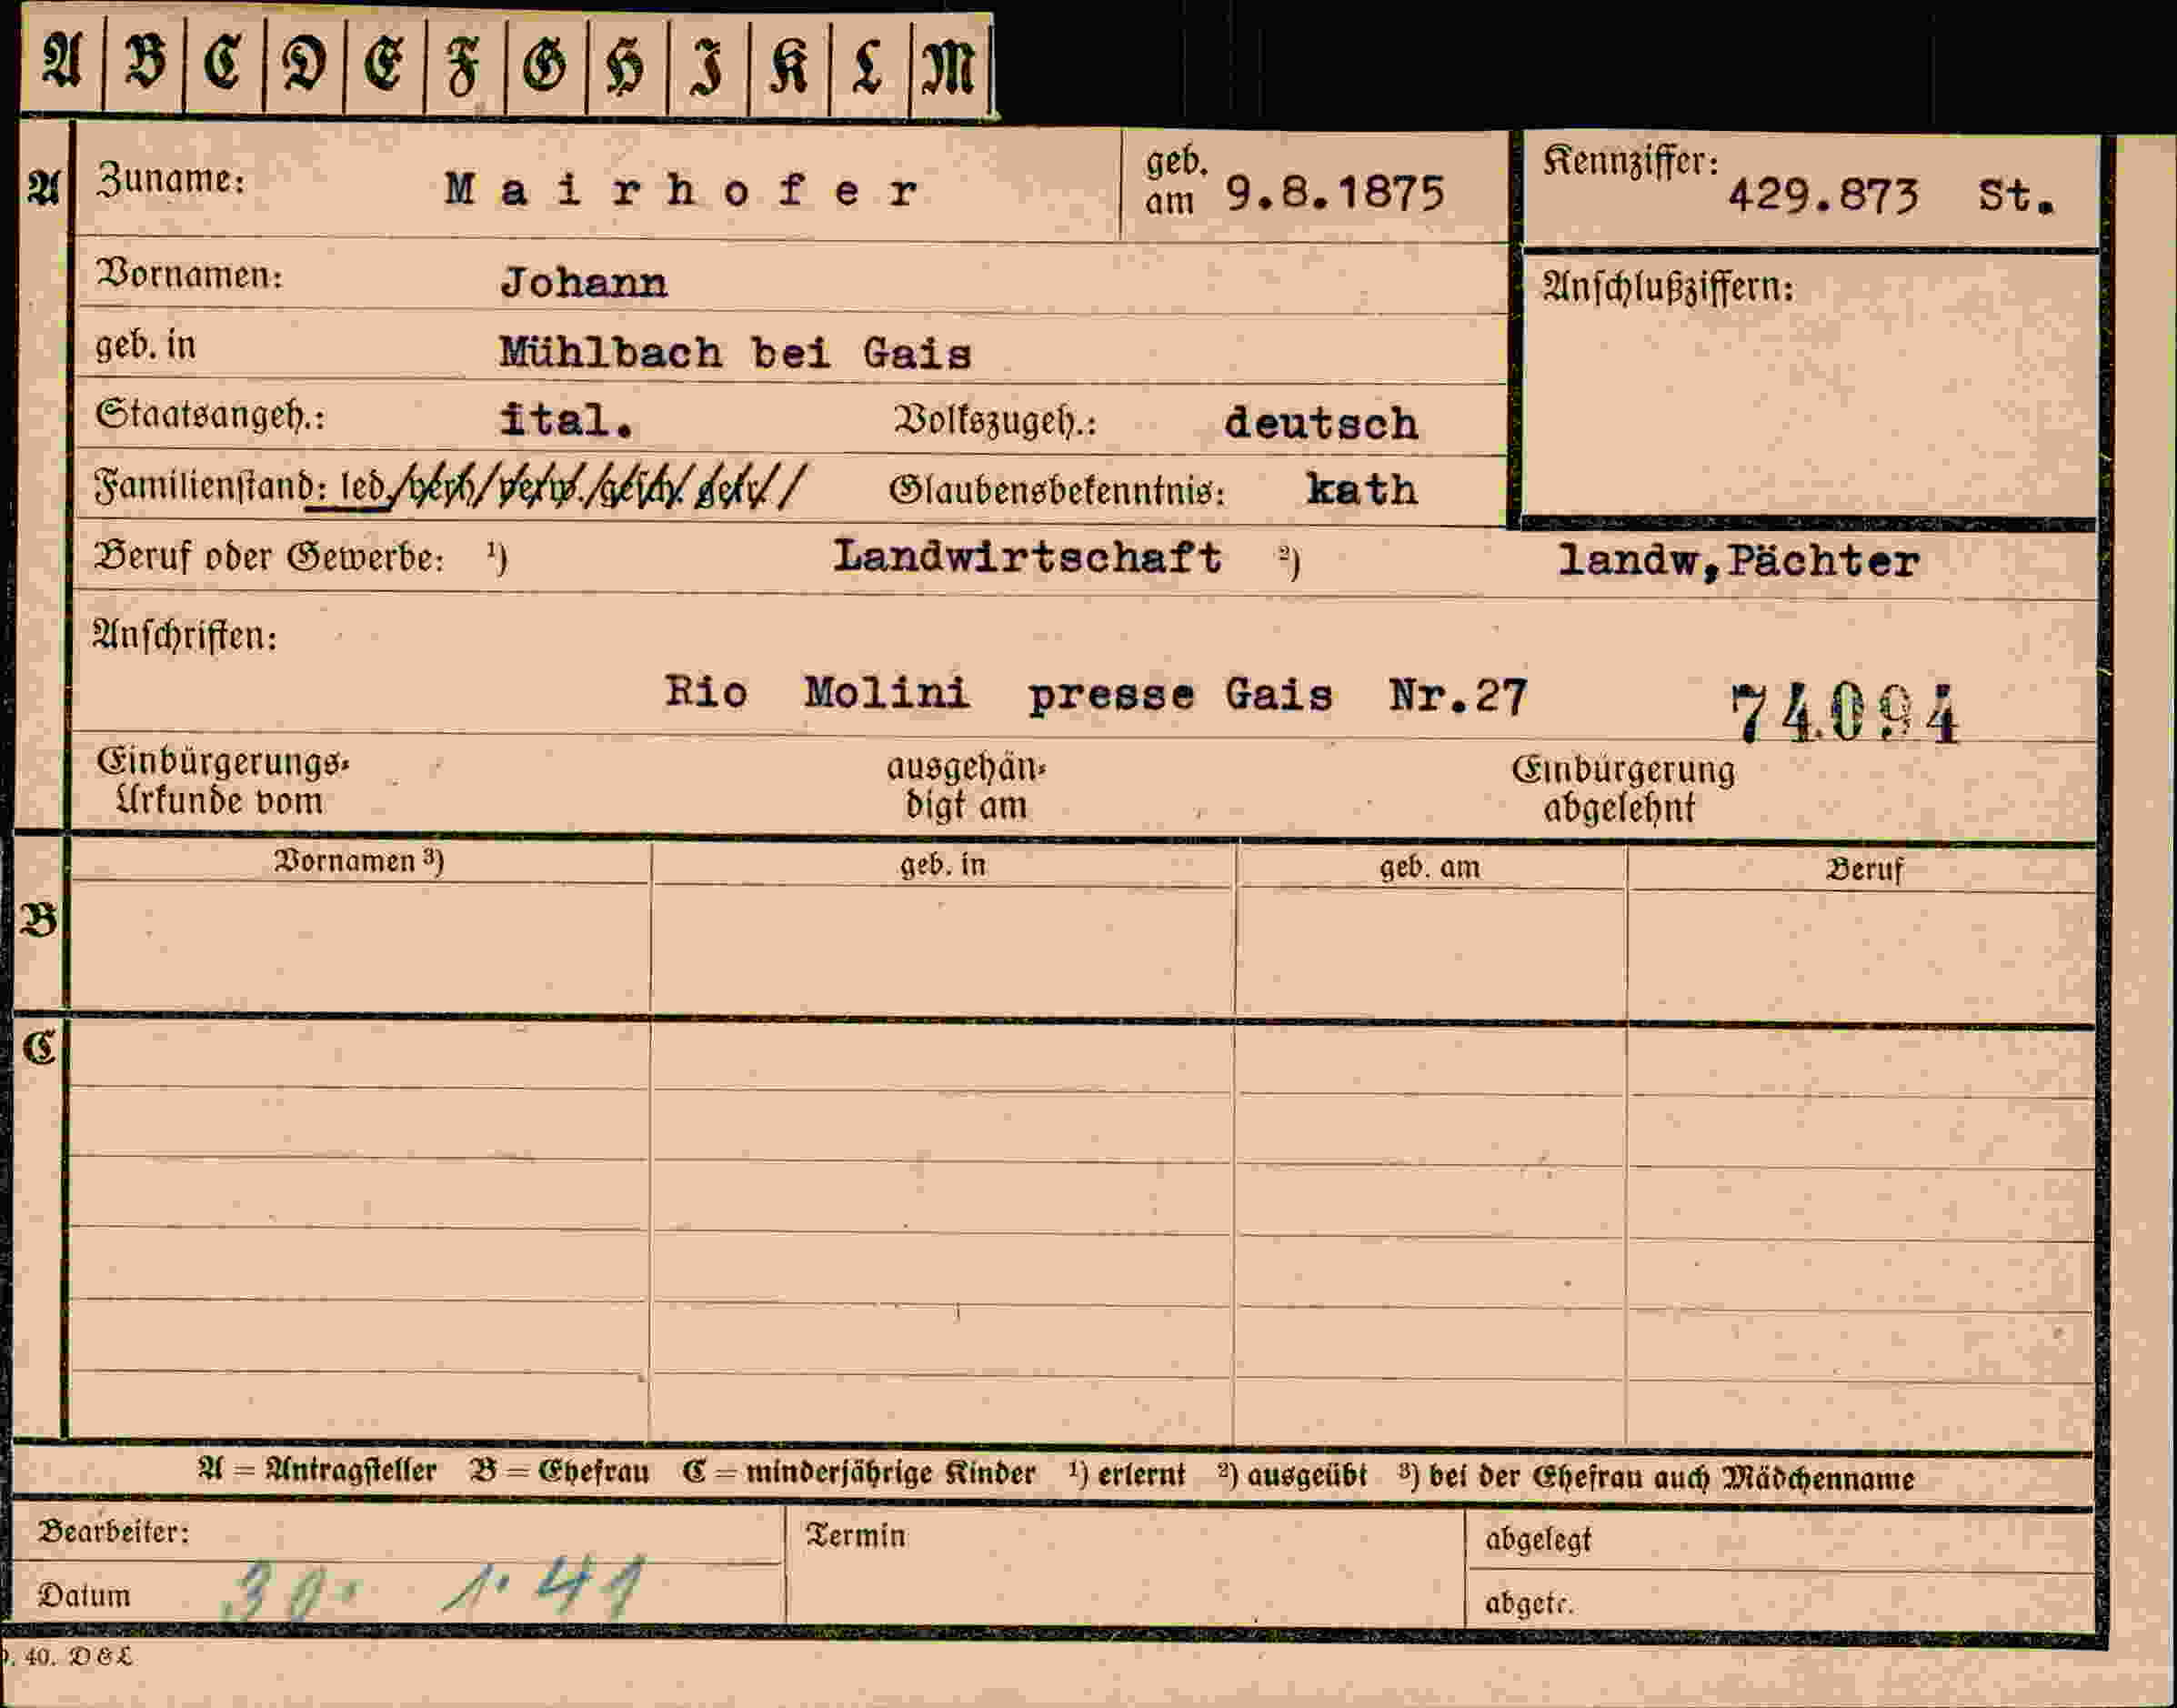 A B C D E F G H I K L M
A Zuname: Mairhofer geb. am 9.8.1875 Kennziffer: 429.873 St.
Vornamen: Johann Anschlußziffern:
geb. in Mühlbach bei Gais
Staatsangeh.: ital. Volkszugeh.: deutsch
Familienstand: led./verh/verw./gesch. getr. Glaubensbekenntnis: kath
Beruf oder Gewerbe: ¹) Landwirtschaft ²) landw,Pächter
Anschriften:
Rio Molini presse Gais Nr.27 74094
Einbürgerungs- ausgehän- Einbürgerung
Urkunde vom digt am abgelehnt
Vornamen ³) geb. in geb. am Beruf
B
C
A = Antragsteller B = Ehefrau C = minderjährige Kinder ¹) erlernt ²) ausgeübt ³) bei der Ehefrau auch Mädchenname
Bearbeiter: Termin abgelegt
Datum 30. 1. 41 abgetr.
. 40. D&L